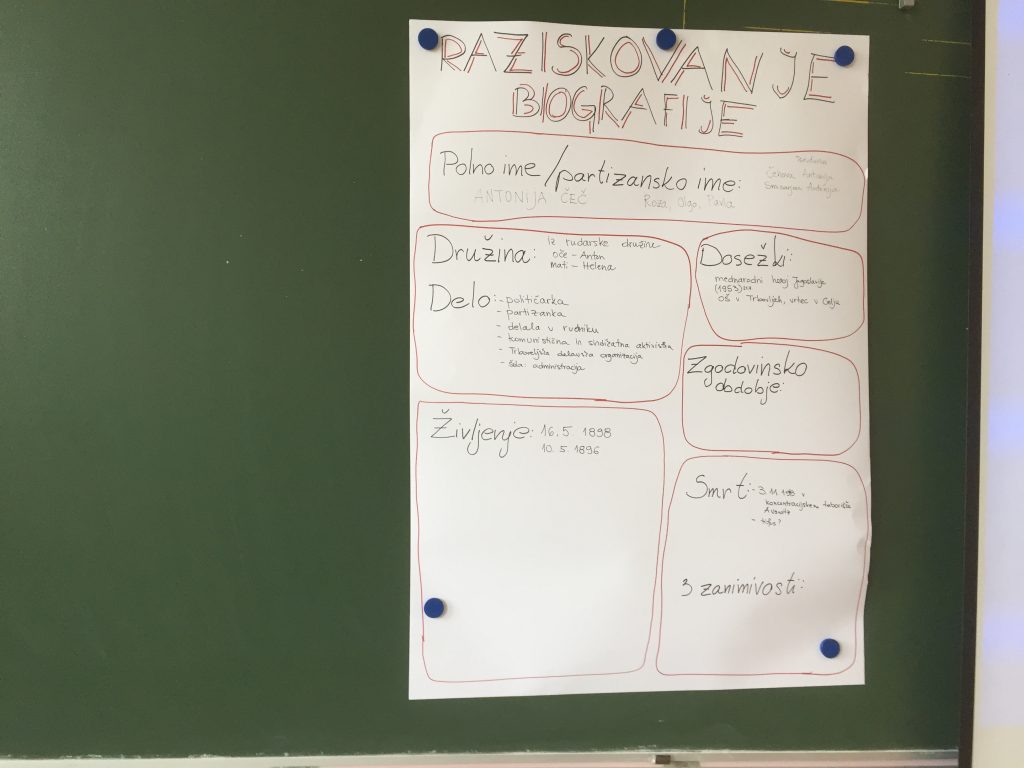 RAZISKOVANJE
BIOGRAFIJE
Polno ime/partizansko ime:
ANTONIJA ČEČ
Roza, Olga, Pavla
Čehova Antonija
Antonija
Družina: iz rudarske družine
oče - Anton
mat. - Helena
Delo: - političarka
- partizanka
- delala v rudniku
- komunistična in sindikatna aktivistka
- delavska organizacija
- administracija
Dosežki:
heroj Jugoslavije
(1953)
OŠ v Trbovljah, vrtec v Celju
Zgodovinsko
obdobje:
Življenje: 16. 5. 1898
10. 5. 1896
Smrt: - 3. 11. v
koncentracijskem taborišču
- tifus?
3 zanimivosti: